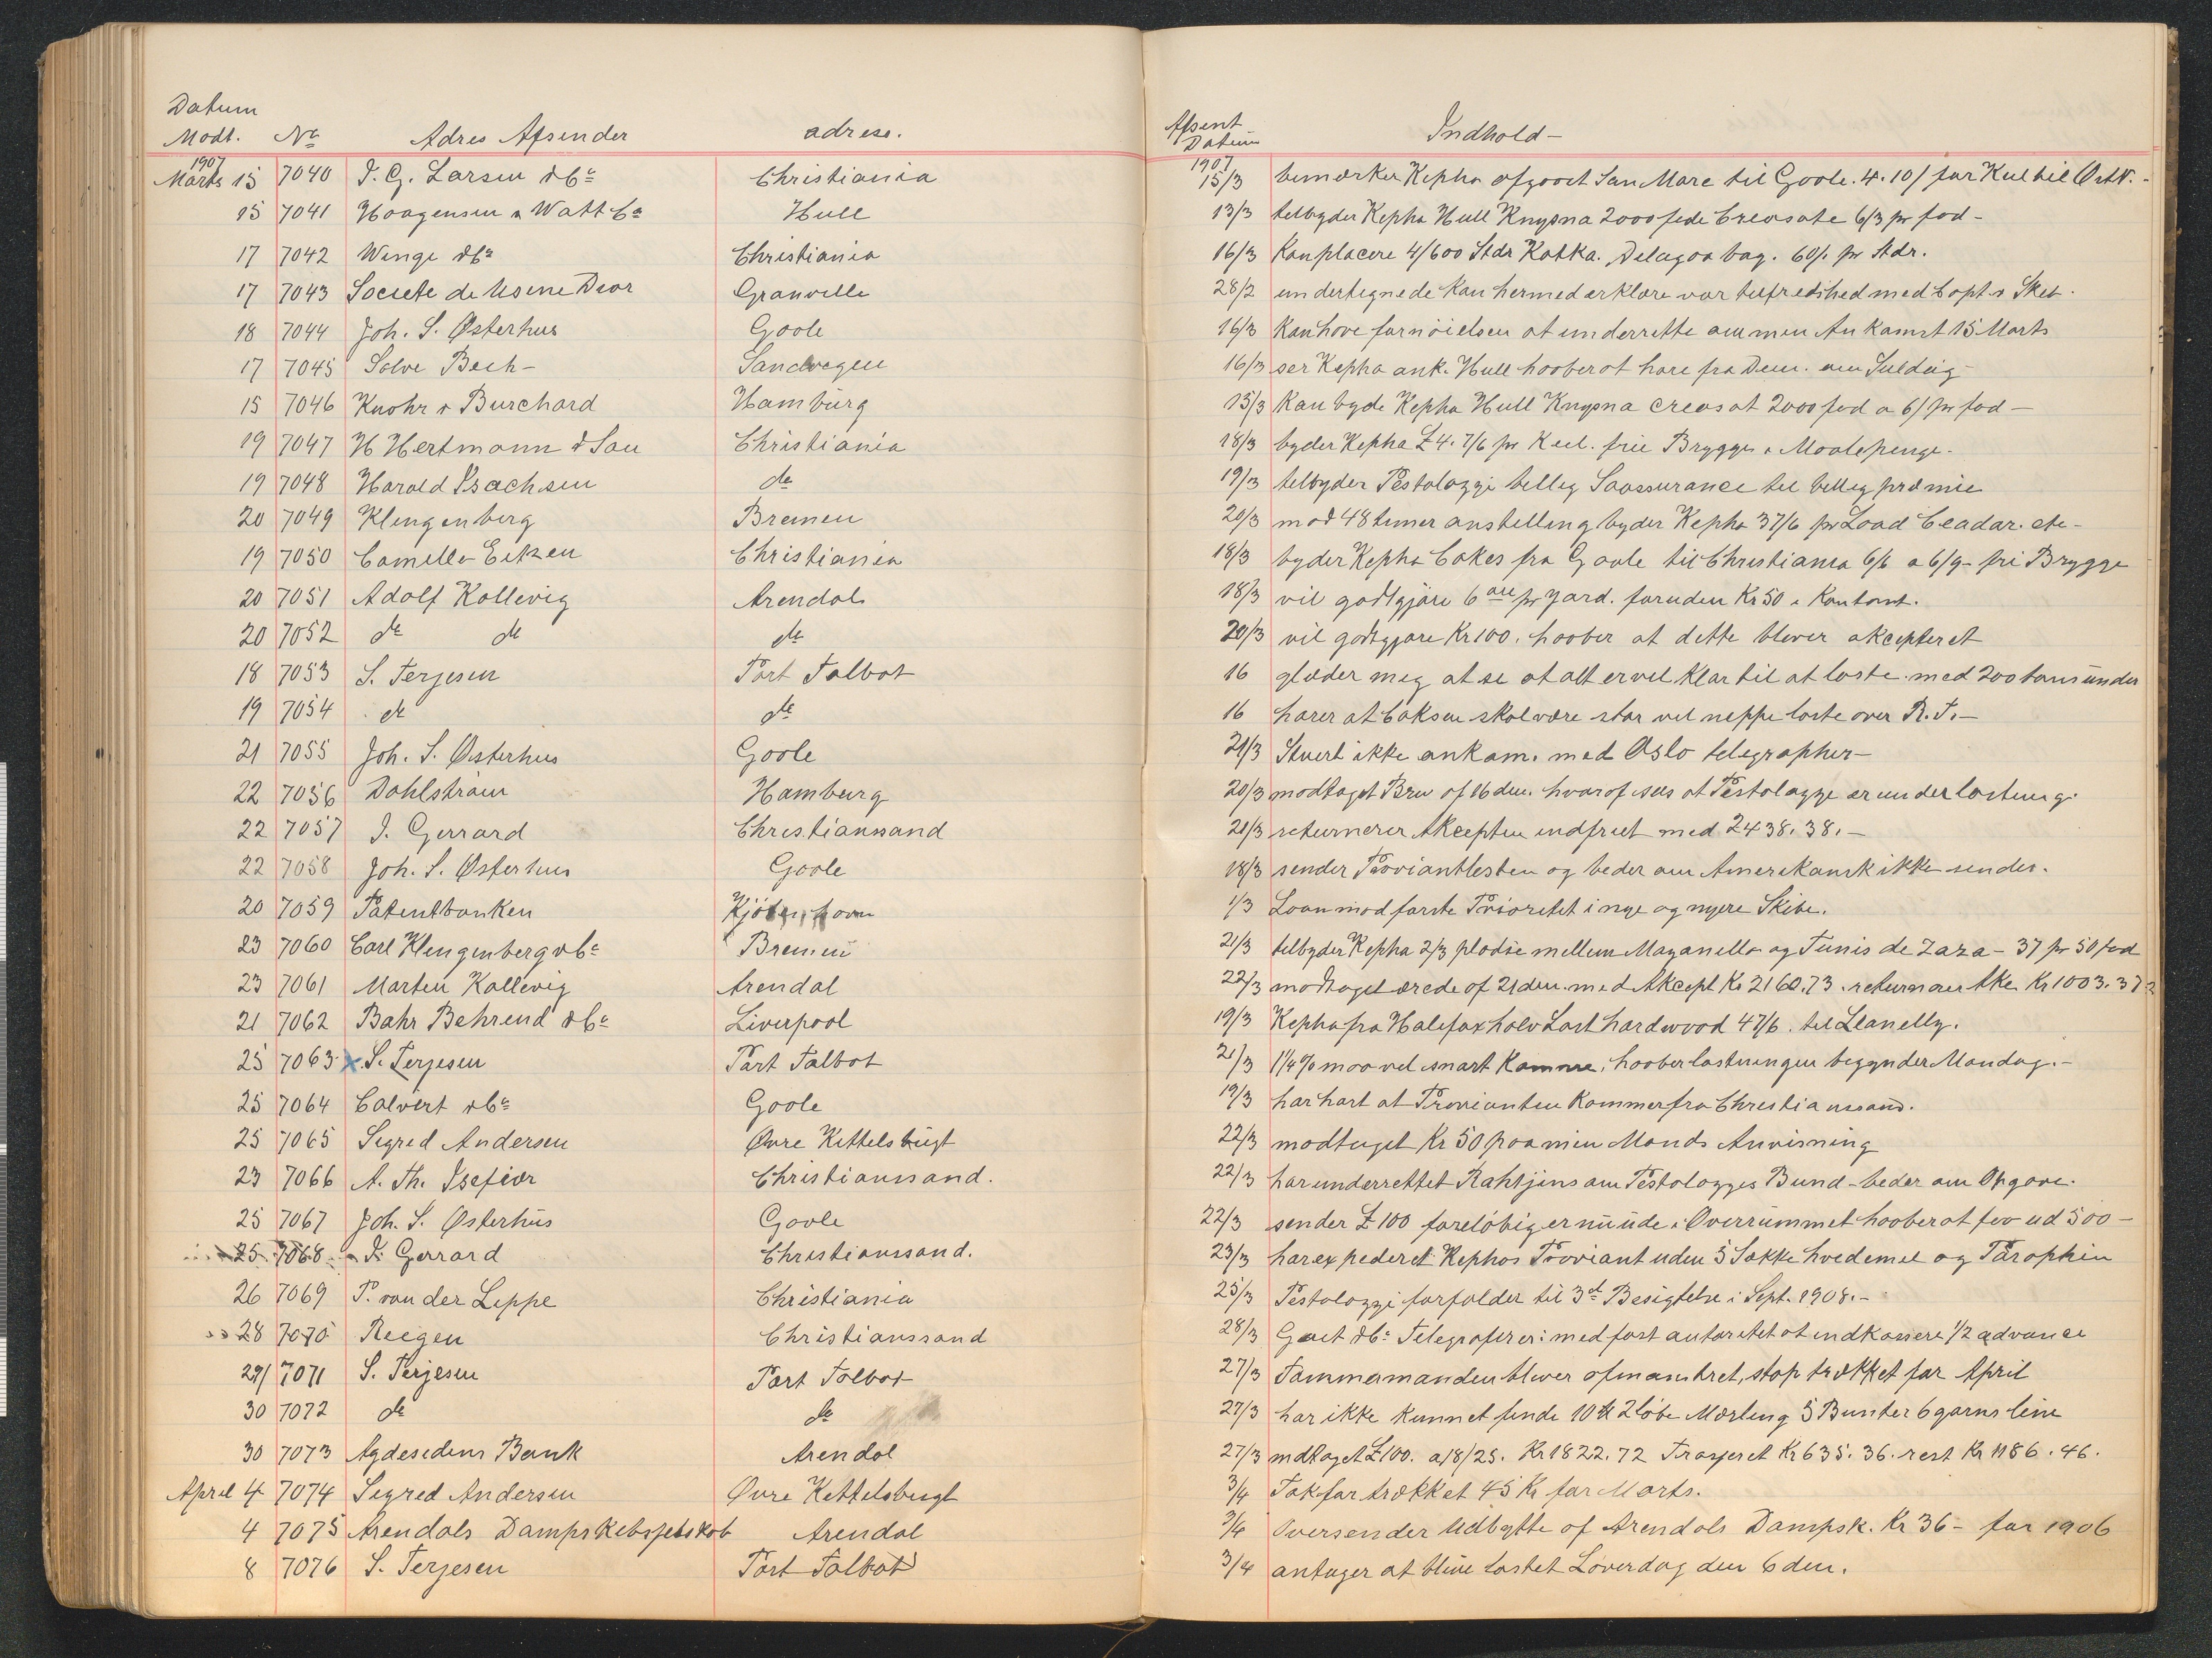 Datum
Modt. No Adres Afsender adrese. Afsent Datum Indhold-
1907 1907
Marts 15 7040 J. G. Larsen & Co Christiania 15/3 bemærker Kepha afgaaet San Mare til Goole. 4.10/ for Kul til
15 7041 Haagensen & Watt Co Hull 13/3 telbyder Kepha Hull Knysna 2000 fede Creosote 6/3 pr fod-
17 7042 Winge & Co Christiania 16/3 Kan placere 4/600 Stdr Kotka. Delagoa bay. 60/. pr Stdr.
17 7043 Societe de Usine Dior Granville 28/2 undertegnede kan hermed erklære vor tilfredshed med Capt s Skib.
18 7044 Joh. S. Østerhus Goole 16/3 Kan have fornöielsen at underrette om min Ankomst 15 Marts
17 7045 Solve Bech- Sandvigen 16/3 ser Kepha ank. Hull haaber at høre fra Dem. om
15 7046 Knohr & Burchard Hamburg 15/3 Kan byde Kepha Hull Knysna creosot 2000 fod a 6/ pr fod-
19 7047 H Hertmann & Son Christiania 18/3 byder Kepha £4. 7/6 pr Keel. frie Brygge & Maalepenge.
19 7048 Harald Isachsen do 19/3 telbyder Pestalozzi billig Saassurance til billig præmie
20 7049 Klingenberg Bremen 20/3 mod 48 timer anstilling byder Kepha 37/6 pr Load Ceadar. etc-
19 7050 Camillo Eitzen Christiania 18/3 byder Kepha Cokes fra Goole til Christiania 6/6 a 6/9- fri Brygge
20 7051 Adolf Kallevig Arendal 18/3 vil godtgjöre 6 öre pr yard. foruden Kr 50 i Kontant.
20 7052 do do do 20/3 vil godtgjøre Kr 100. haaber at dette blever akcepteret
18 7053 S. Terjesen Port Talbot 16 glæder meg at se at alt er vel klar til at laste. med 200 tons under
19 7054 do do 16 hører at Coksen skal være stor vel neppe laste over R.T.-
21 7055 Joh. S. Østerhus Goole 21/3 Stuert ikke ankom. med Oslo telegrapher-
22 7056 Dahlström Hamburg 20/3 modtaget Brev af 16 den. hvoraf sees at Pestalozzi er under lastning.
22 7057 J. Gerrard Christianssand 21/3 returnerer Akcepten indfriet med 2438.38.-
22 7058 Joh. S. Østerhus Goole 18/3 sender Proviantlesten og beder om Amerikansk ikke sendes.
20 7059 Patentbanken Kjöbenhavn 1/3 Laan mod første Prioretet i nye og nyere Skibe.
23 7060 Carl Klengenberg & Co Bremen 21/3 telbyder Kepha 2/3 pladse mellem Mazanello og Tunis de Zaza- 37 pr 50 fod
23 7061 Morten Kallevig Arendal 22/3 modtaget ærede af 21 den. med Akcept Kr 2160.73. returnerer Akc. Kr 1003.37
21 7062 Bahr Behrend & Co Liverpool 19/3 Kepha fra Halifax halv Last hardwood 47/6. til Llanelly.
25 7063 x S. Terjesen Port Talbot 21/3 1¼% maa vel snart Komme. haaber lastningen begynder Mandag.-
25 7064 Calvert & Co Goole 19/3 har hørt at Provianten Kommer fra Christianssand.
25 7065 Segred Andersen Øvre Kittelsbugt 22/3 modtaget Kr 50 paa min Mands Anvisning
23 7066 A. Th. Isefiær Christianssand. 22/3 har underrettet Rahtjens om Pestalozzis Bund- beder om Opgave.
25 7067 Joh. S. Østerhus Goole 22/3 sender £100 foreløbig er nu ude i Overrummet haaber at faa ud 500-
25 7068 J. Gerrard Christianssand. 23/3 har expederet Kephas Proviant uden 5 Sække hvedemel og Parophin
26 7069 P. von der Leppe Christiania 25/3 Pestalozzi forfalder til 3d Besigtelse i Sept. 1908.-
28 7070 Reegen Christianssand 28/3 & Co Telegraferer: med fast autoretet at indkassere 1/2 advance
29/ 7071 S. Terjesen Port Talbot 27/3 Tømmermanden blever afmønstret, stop trækket for April
30 7072 do do 27/3 har ikke kunnet finde 10 2 löbe Mærling 5 Bunter 6 garns line
30 7073 Agdesidens Bank Arendal 27/3 mdtaget £100. a 18/25. Kr 1822.72 Trasseret Kr 635.36. rest Kr 1186.46.
April 4 7074 Segred Andersen Øvre Kettelsbugt 3/4 Tak for trækket 45 Kr for Marts.
4 7075 Arendals Dampskebsselskab Arendal 3/4 Oversender Udbytte af Arendals Dampsk. Kr 36- for 1906
8 7076 S. Terjesen Port Talbot 3/4 antager at blive lastet Løverdag den 6 den.